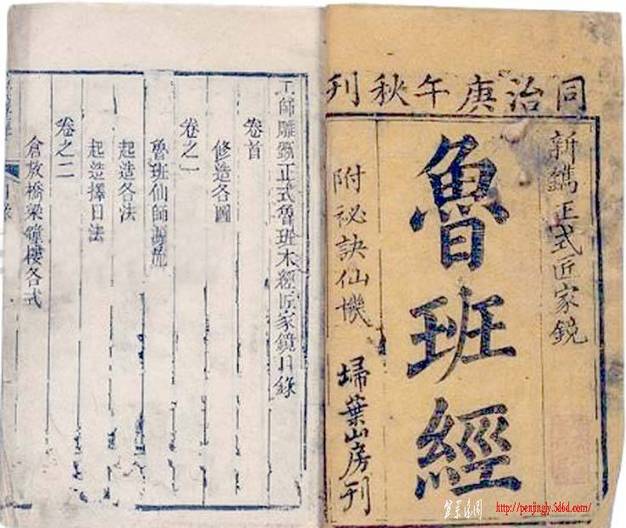 同治庚午秋刊
新鐫正式匠家鏡
魯班經
附祕訣仙機
埽葉山房刊
工師雕斵正式魯班木經匠家鏡目錄
卷首
修造各圖
卷之一
魯班仙師源流
起造各法
起造擇日法
卷之二
倉敖橋梁鐘樓各式
http://penjingy.5d6d.com/